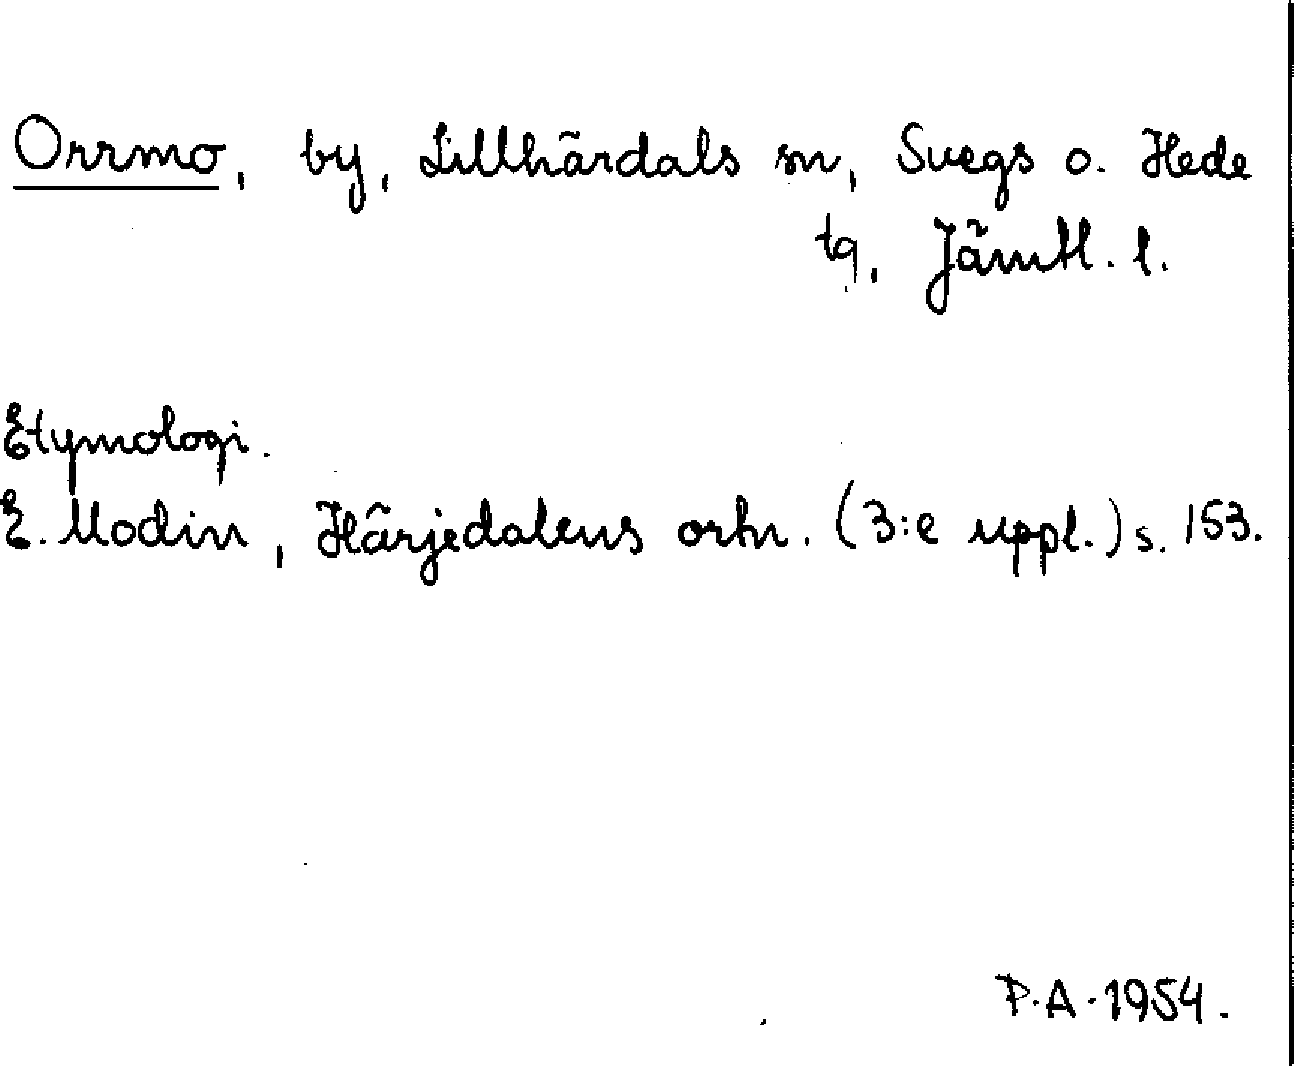 Orrmo, by, Lillhärdals sn, Svegs o. Hede
tg, Jämtl. l.
Etymologi.
E. Modin, Härjedalens ortn. (3:e uppl.) s. 153.
P.A. 1954.